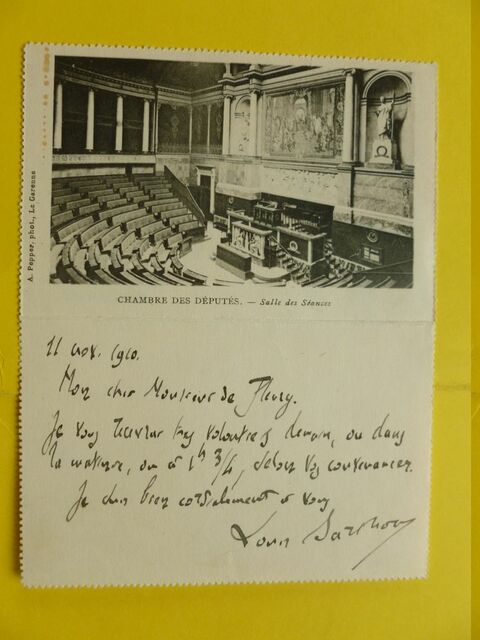 A. Pepper, phot., La Garenne
CHAMBRE DES DÉPUTÉS. — Salle des Séances
11 nov. 1910.
Mon cher Monsieur de Fleury.
Je vous recevrai très volontiers demain, ou dans
la matinée, ou à 1h 3/4, selon vos convenances.
Je suis bien cordialement à vous
Louis Barthou